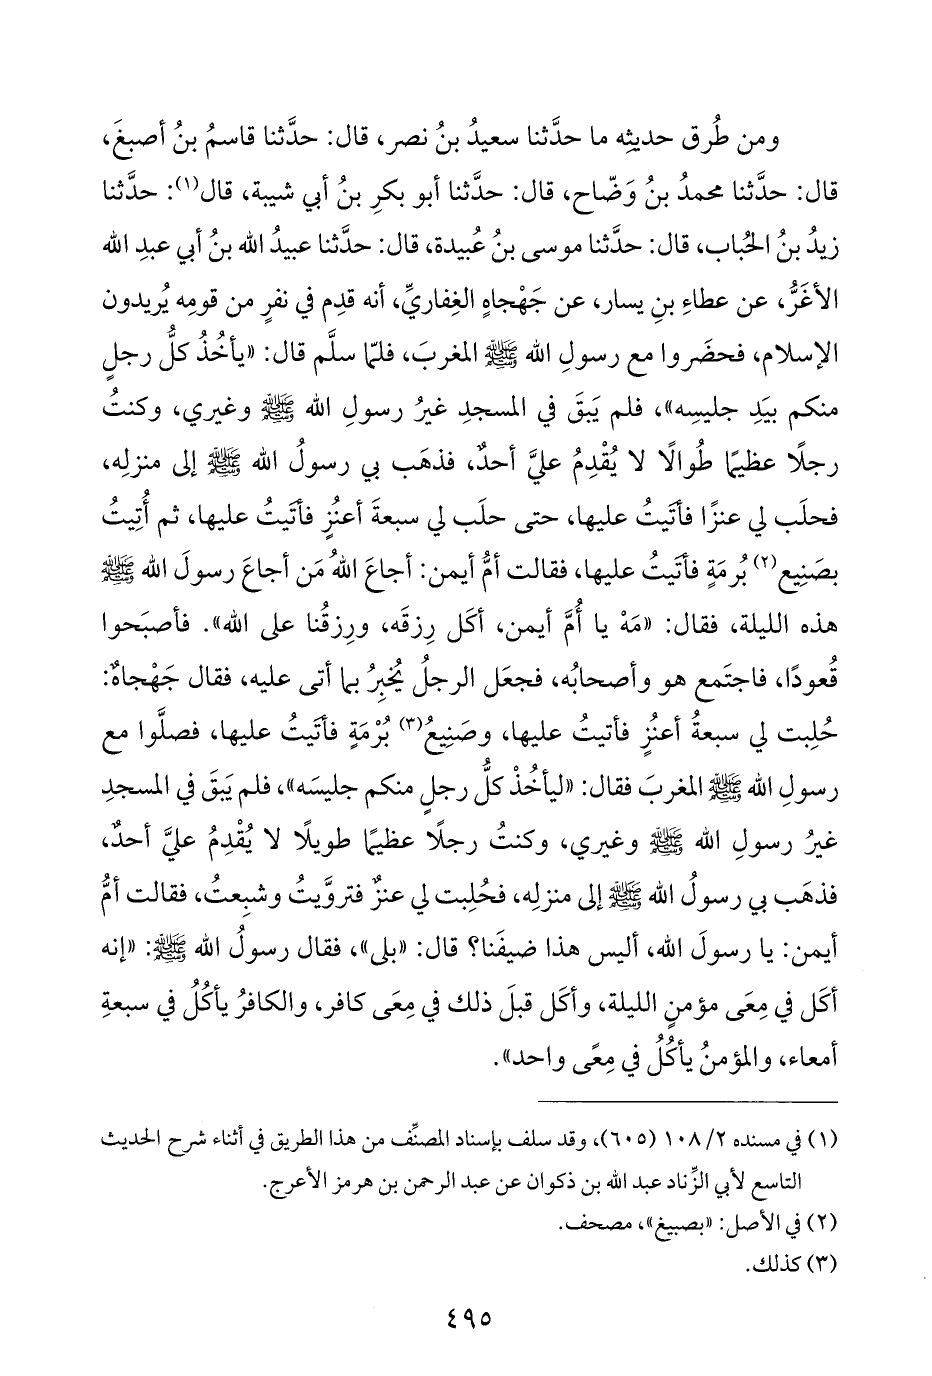 ومن طُرق حديثِه ما حدَّثنا سعيدُ بنُ نصر، قال: حدَّثنا قاسمُ بنُ أصبغَ،
قال: حدَّثنا محمدُ بنُ وَضّاح، قال: حدَّثنا أبو بكرِ بنُ أبي شيبة، قال(١): حدَّثنا
زيدُ بنُ الحُباب، قال: حدَّثنا موسى بنُ عُبيدة، قال: حدَّثنا عبيدُ الله بنُ أبي عبدِ الله
الأغَرُّ، عن عطاءِ بنِ يسار، عن جَهْجاهٍ الغِفاريِّ، أنه قدِم في نفرٍ من قومِه يُريدون
الإسلام، فحضَروا مع رسولِ الله ﷺ المغربَ، فلمّا سلَّم قال: «يأخُذُ كلُّ رجلٍ
منكم بيَدِ جليسِه»، فلم يَبقَ في المسجدِ غيرُ رسولِ الله ﷺ وغيري، وكنتُ
رجلًا عظيمًا طُوالًا لا يُقْدِمُ عليَّ أحدٌ، فذهَب بي رسولُ الله ﷺ إلى منزلِه،
فحلَب لي عنزًا فأتَيتُ عليها، حتى حلَب لي سبعةَ أعنُزٍ فأتَيتُ عليها، ثم أُتِيتُ
بصَنِيع(٢) بُرمَةٍ فأتَيتُ عليها، فقالت أمُّ أيمن: أجاعَ اللهُ مَن أجاعَ رسولَ الله ﷺ
هذه الليلة، فقال: «مَهْ يا أُمَّ أيمن، أكَل رِزقَه، ورِزقُنا على الله». فأصبَحوا
قُعودًا، فاجتَمع هو وأصحابُه، فجعَل الرجلُ يُخبِرُ بما أتى عليه، فقال جَهْجاهٌ:
حُلِبت لي سبعةُ أعنُزٍ فأتيتُ عليها، وصَنِيعُ(٣) بُرْمَةٍ فأتَيتُ عليها، فصلَّوا مع
رسولِ الله ﷺ المغربَ فقال: «ليأخُذْ كلُّ رجلٍ منكم جليسَه»، فلم يَبقَ في المسجدِ
غيرُ رسولِ الله ﷺ وغيري، وكنتُ رجلًا عظيمًا طويلًا لا يُقْدِمُ عليَّ أحدٌ،
فذهَب بي رسولُ الله ﷺ إلى منزلِه، فحُلِبت لي عنزٌ فتروَّيتُ وشبِعتُ، فقالت أمُّ
أيمن: يا رسولَ الله، أليس هذا ضيفَنا؟ قال: «بلى»، فقال رسولُ الله ﷺ: «إنه
أكَل في مِعَى مؤمنٍ الليلة، وأكَل قبلَ ذلك في مِعَى كافر، والكافرُ يأكُلُ في سبعةِ
أمعاء، والمؤمنُ يأكُلُ في مِعًى واحد».
(١) في مسنده ٢/ ١٠٨ (٦٠٥)، وقد سلف بإسناد المصنِّف من هذا الطريق في أثناء شرح الحديث
التاسع لأبي الزِّناد عبد الله بن ذكوان عن عبد الرحمن بن هرمز الأعرج.
(٢) في الأصل: «بصبيغ»، مصحف.
(٣) كذلك.
٤٩٥